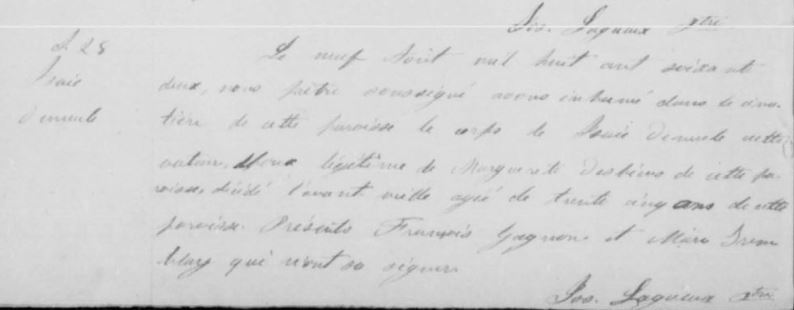 Jos. Lagueux ptre
S. 28
Isaie
Demeule
Le neuf Août mil huit cent soixante
deux, nous prêtre soussigné avons inhumé dans le cime-
tière de cette paroisse le corps de Isaïe Demeule
époux légitime de Marguerite Desbiens de cette pa-
roisse, décédé l'avant veille agé de trente cinq ans de cette
paroisse. Présents François Gagnon et Trem-
blay qui n'ont su signer.
Jos. Lagueux ptre